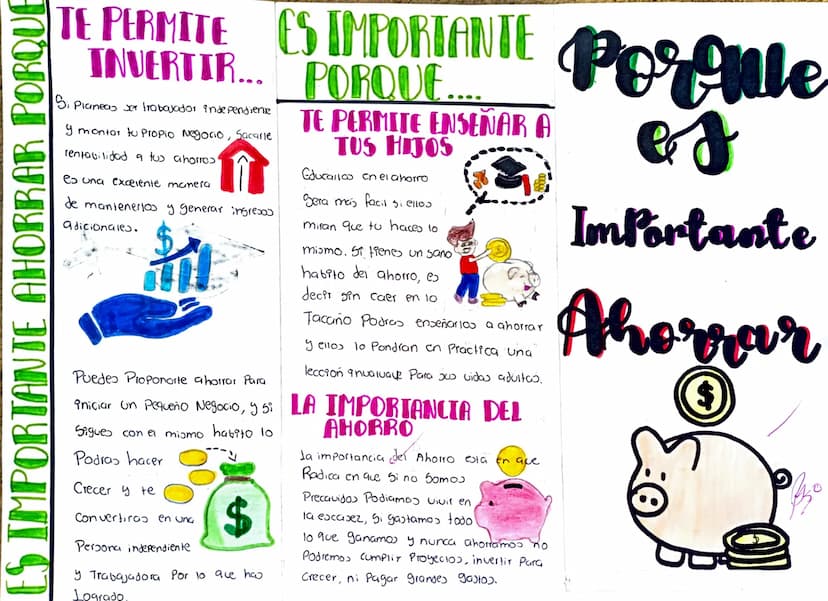 ES IMPORTANTE AHORRAR PORQUE
TE PERMITE
INVERTIR...
Si Planeas ser trabajador independiente
y montar tu Propio Negocio, sacarle
rentabilidad a tus ahorros
es una excelente manera
de mantenerlos y generar ingresos
adicionales.
$
Puedes Proponerte ahorrar Para
iniciar un Pequeño Negocio, y si
Sigues con el mismo habito lo
Podras hacer
Crecer y te
Convertiras en una
Persona independiente
y Trabajadora Por lo que has
Logrado.
$
ES IMPORTANTE
PORQUE....
TE PERMITE ENSEÑAR A
TUS HIJOS
Educarlos en el ahorro
Sera mas facil si ellos
miran que tu haces lo
mismo. Si tienes un sano
habito del ahorro, es
decir sin caer en lo
Tacaño Podras enseñarlos a ahorrar
y ellos lo Pondran en Practica una
lección para sus vidas adultas.
LA IMPORTANCIA DEL
AHORRO
La importancia del Ahorro está en que
Radica en que si no Somos
Precavidos Podiamos vivir en
la escasez, Si gastamos todo
lo que ganamos y nunca ahorramos no
Podremos cumplir Proyectos, invertir Para
Crecer, ni Pagar grandes Gastos.
Porque
es
Importante
Ahorrar
$
$